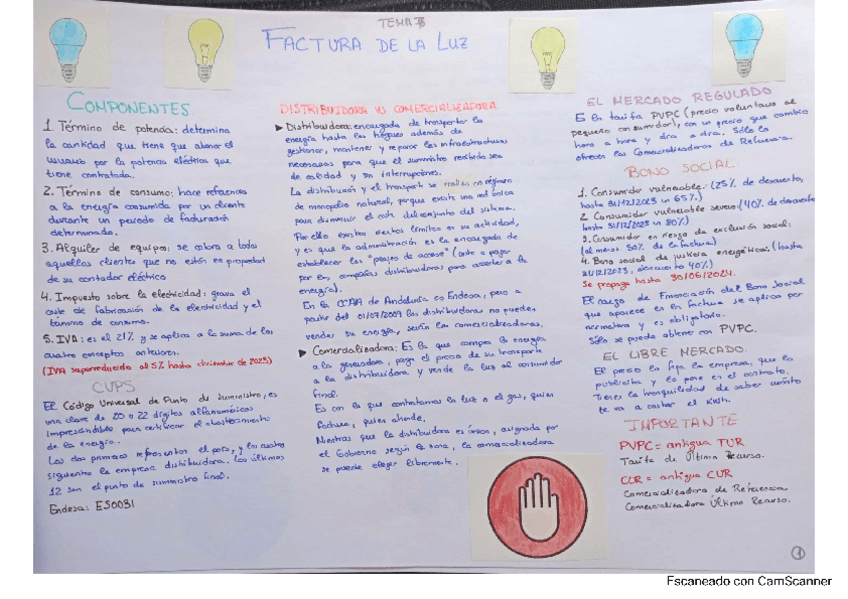 TEMA 3
FACTURA DE LA LUZ
COMPONENTES
1. Término de potencia: determina
la cantidad que tiene que abonar el
usuario por la potencia eléctrica que
tiene contratada.
2. Término de consumo: hace referencia
a la energía consumida por un cliente
durante un periodo de facturación
determinado.
3. Alquiler de equipos: se cobra a todos
aquellos clientes que no están en propiedad
de su contador eléctrico
4. Impuesto sobre la electricidad: grava el
coste de fabricación de la electricidad y el
término de consumo.
5. IVA: es el 21% y se aplica a la suma de los
cuatro conceptos anteriores.
(IVA superreducido al 5% hasta diciembre de 2023)
CUPS
El Código Universal de Punto de Suministro, es
una clave de 20 o 22 dígitos alfanuméricos
imprescindible para certificar el abastecimiento
de la energía.
Los dos primeros representan el país, y los cuatro
siguientes la empresa distribuidora. Los últimos
12 son el punto de suministro final.
Endesa: ES0031
DISTRIBUIDORA VS COMERCIALIZADORA
➤ Distribuidora: encargada de transportar la
energía hasta los hogares además de
gestionar, mantener y reparar las infraestructuras
necesarias para que el suministro recibido sea
de calidad y sin interrupciones.
La distribución y el transporte se realiza en régimen
de monopolio natural, porque existe una red única
para disminuir el coste del conjunto del sistema.
Por ello existen ciertos límites en su actividad,
y es que la administración es la encargada de
establecer los "peajes de acceso" (coste a pagar
por las compañías distribuidoras para acceder a la
energía).
En la CCAA de Andalucía es Endesa, pero a
partir del 01/07/2009 las distribuidoras no pueden
vender su energía, serán las comercializadoras.
➤ Comercializadora: Es la que compra la energía
a la generadora, paga el precio de su transporte
a la distribuidora y vende la luz al consumidor
final.
Es con la que contratamos la luz o el gas, quien
factura, quien atiende.
Mientras que la distribuidora es única, asignada por
el Gobierno según la zona, la comercializadora
se puede elegir libremente.
EL MERCADO REGULADO
Es la tarifa PVPC (precio voluntario al
pequeño consumidor), con un precio que cambia
hora a hora y día a día. Sólo la
ofrecen las Comercializadoras de Referencia.
BONO SOCIAL
1. Consumidor vulnerable: (25% de descuento,
hasta 31/12/2023 un 65%)
2. Consumidor vulnerable severo: (40% de descuento
hasta 31/12/2023 un 80%)
3. Consumidor en riesgo de exclusión social:
(al menos 50% de la factura)
4. Bono social de justicia energética: (hasta
31/12/2023, descuento 40%)
Se propaga hasta 30/06/2024.
El cargo de Financiación del Bono Social
que aparece en la factura se aplica por
normativa y es obligatorio.
Sólo se puede obtener con PVPC.
EL LIBRE MERCADO
El precio lo fija la empresa, que la
publicita y lo pone en el contrato.
Tienes la tranquilidad de saber cuánto
te va a costar el kWh.
IMPORTANTE
PVPC = antigua TUR
Tarifa de Último Recurso.
COR = antigua CUR
Comercializadora de Referencia
Comercializadora Último Recurso.
1
Escaneado con CamScanner